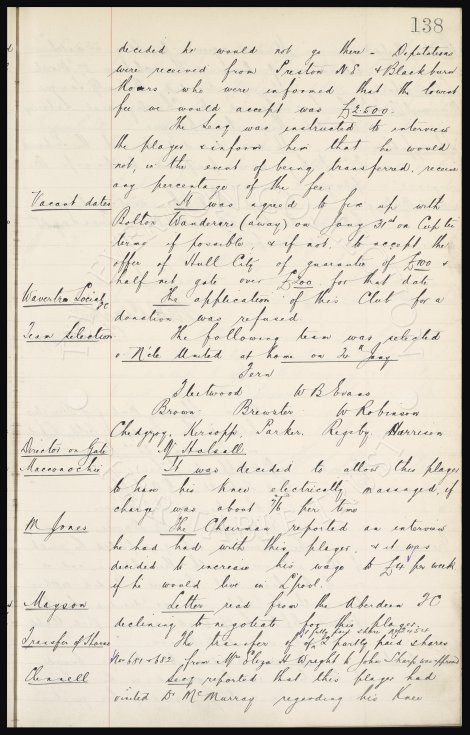 138
decided he would not go there - Deputations
were received from Preston N E & Blackburn
Rovers who were informed that the lowest
fee we would accept was £2.500.
The Secy was instructed to interview
the player & inform him that he would
not, in the event of being transferred, receive
any percentage of the fee.
Vacant dates It was agreed to fix up with
Bolton Wanderers (away) on Jany 31st on Cup tie
terms if possible, & if not, to accept the
offer of Hull City of guarantee of £100 &
half net gate over £200 for that date
Wavertree Social FC The application of this Club for a
donation was refused
Team Selection The following team was selected
v. N'cle United at home on Jany
Fern
Fleetwood W B Evans
Brown Brewster W Robinson
Chedgzoy, Kirsopp, Parker, Rigsby, Harrison
Director on Gate Mr Halsall
Macconachie It was decided to allow this player
to have his Knee electrically massaged, if
charge was about 7/6 per time
M Jones The Chairman reported an interview
he had had with this player, & it was
decided to increase his wage to £4 per week
if he would live in Lpool.
Mayson Letter read from the Aberdeen FC
declining to negotiate for this player.
1 fully paid share No 2454
Transfer of Shares The transfer of 2 partly paid shares
Nos 681 & 682 from Mrs Eliza A Wright to John Sharp was approved
Clennell Secy reported that this player had
visited Dr McMurray regarding his Knee